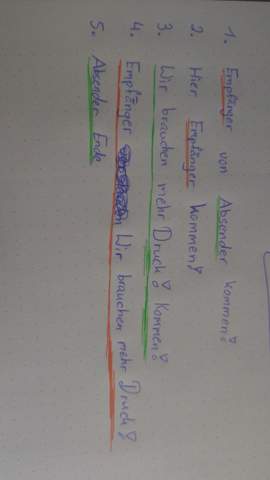 1. Empfänger von Absender kommen!
2. Hier Empfänger kommen!
3. Wir brauchen mehr Druck! Kommen!
4. Empfänger Wir brauchen mehr Druck!
5. Absender Ende